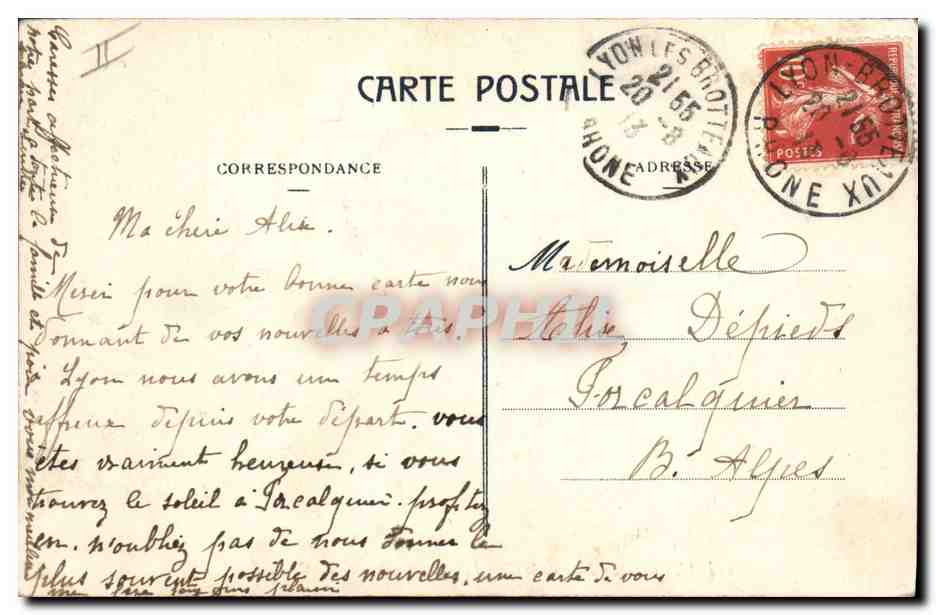 II
CARTE POSTALE
CORRESPONDANCE
ADRESSE
LYON LES BROTTEAUX
21 55
20 -8
13
RHONE
LYON-BROTTEAUX
21 55
RHONE
POSTES
Ma chère Alise.
Merci pour votre bonne carte nous
donnant de vos nouvelles à tous.
Lyon nous avons un temps
affreux depuis votre départ. vous
êtes vraiment heureuse, si vous
trouvez le soleil à Forcalquier. profitez
en. n'oubliez pas de nous donner le
plus souvent possible des nouvelles, une carte de vous
me fera plaisir
Mademoiselle
Alise Dépieds
Forcalquier
B. Alpes
Caresses affectueuses de
notre part à toute la famille et pour vous nos meilleurs
CPAPHIL